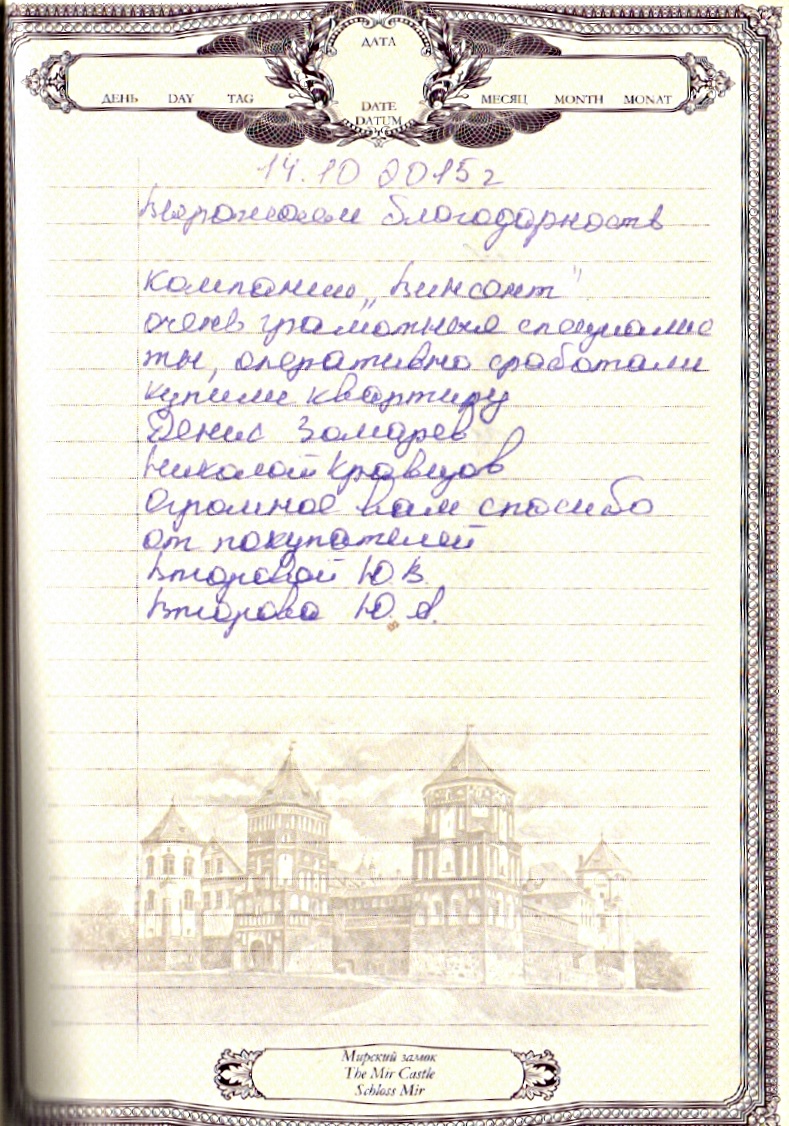 ДАТА
ДЕНЬ DAY TAG
МЕСЯЦ MONTH MONAT
DATE
DATUM
14.10 2015г
Выражаем благодарность
компании „Винсент"
очень грамотные специалис
ты, оперативно сработали
купили квартиру
Денис Замарев
Николай Кравцов
огромное вам спасибо
от покупателей
Второвой Ю.В.
Второва Ю.А.
Мирский замок
The Mir Castle
Schloss Mir